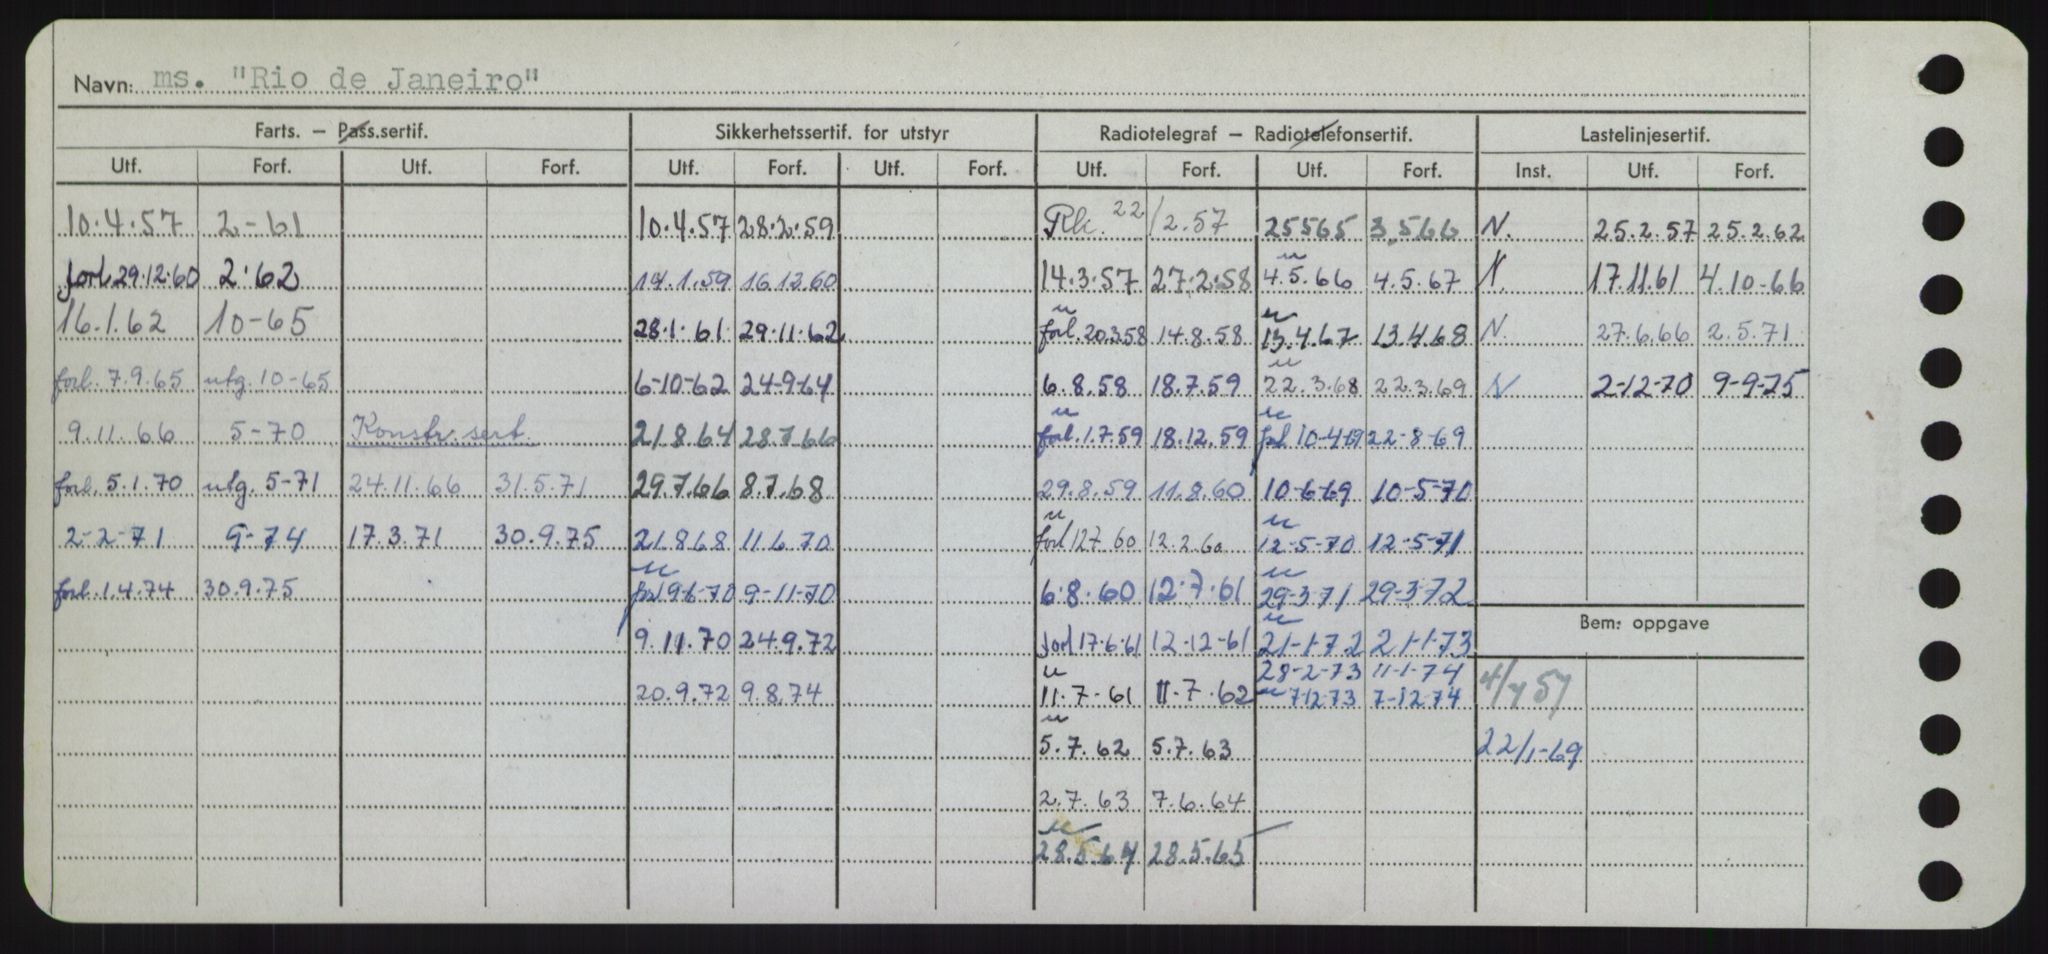 Navn: ms. "Rio de Janeiro"
Farts. – Pass.sertif. Sikkerhetssertif. for utstyr Radiotelegraf – Radiotelefonsertif. Lastelinjesertif.
Utf. Forf. Utf. Forf. Utf. Forf. Utf. Forf. Utf. Forf. Utf. Forf. Inst. Utf. Forf.
10.4.57 2-61 10.4.57 28.2.59 Rk. 22/2.57 25565 3.5.66 N. 25.2.57 25.2.62
forl. 29.12.60 2.62 14.1.59 16.12.60 14.3.57 27.2.58 4.5.66 4.5.67 N. 17.11.61 4.10-66
16.1.62 10-65 28.1.61 29.11.62 forl. 20.3.58 14.8.58 13.4.67 13.4.68 N. 27.6.66 2.5.71
forl. 7.9.65 utg. 10-65 6-10-62 24-9-64 6.8.58 18.7.59 22.3.68 22.3.69 N 2-12-70 9-9-75
9.11.66 5-70 Konstr. sert. 21.8.64 28.7.66 forl. 1.7.59 18.12.59 forl 10-4-69 22-8-69
forl. 5.1.70 utg. 5-71 24.11.66 31.5.71 29.7.66 8.7.68 29.8.59 11.8.60 10-6-69 10-5-70
2-2-71 9-74 17.3.71 30.9.75 21.8.68 11.6.70 forl 12.7.60 12.2.60 12-5-70 12-5-71
forl. 1.4.74 30.9.75 forl 9-6-70 9-11-70 6.8.60 12.7.61 29-3-71 29-3-72
Bem: oppgave
9.11.70 24.9.72 forl 17.6.61 12-12-61 21-1-72 21-1-73
28-2-73 11-1-74
20.9.72 9.8.74 11.7-61 11.7.62 7-12-73 7-12-74 4/4 57
5.7.62 5.7.63 22/1-69
2.7.63 7.6.64
28.5.64 28.5.65